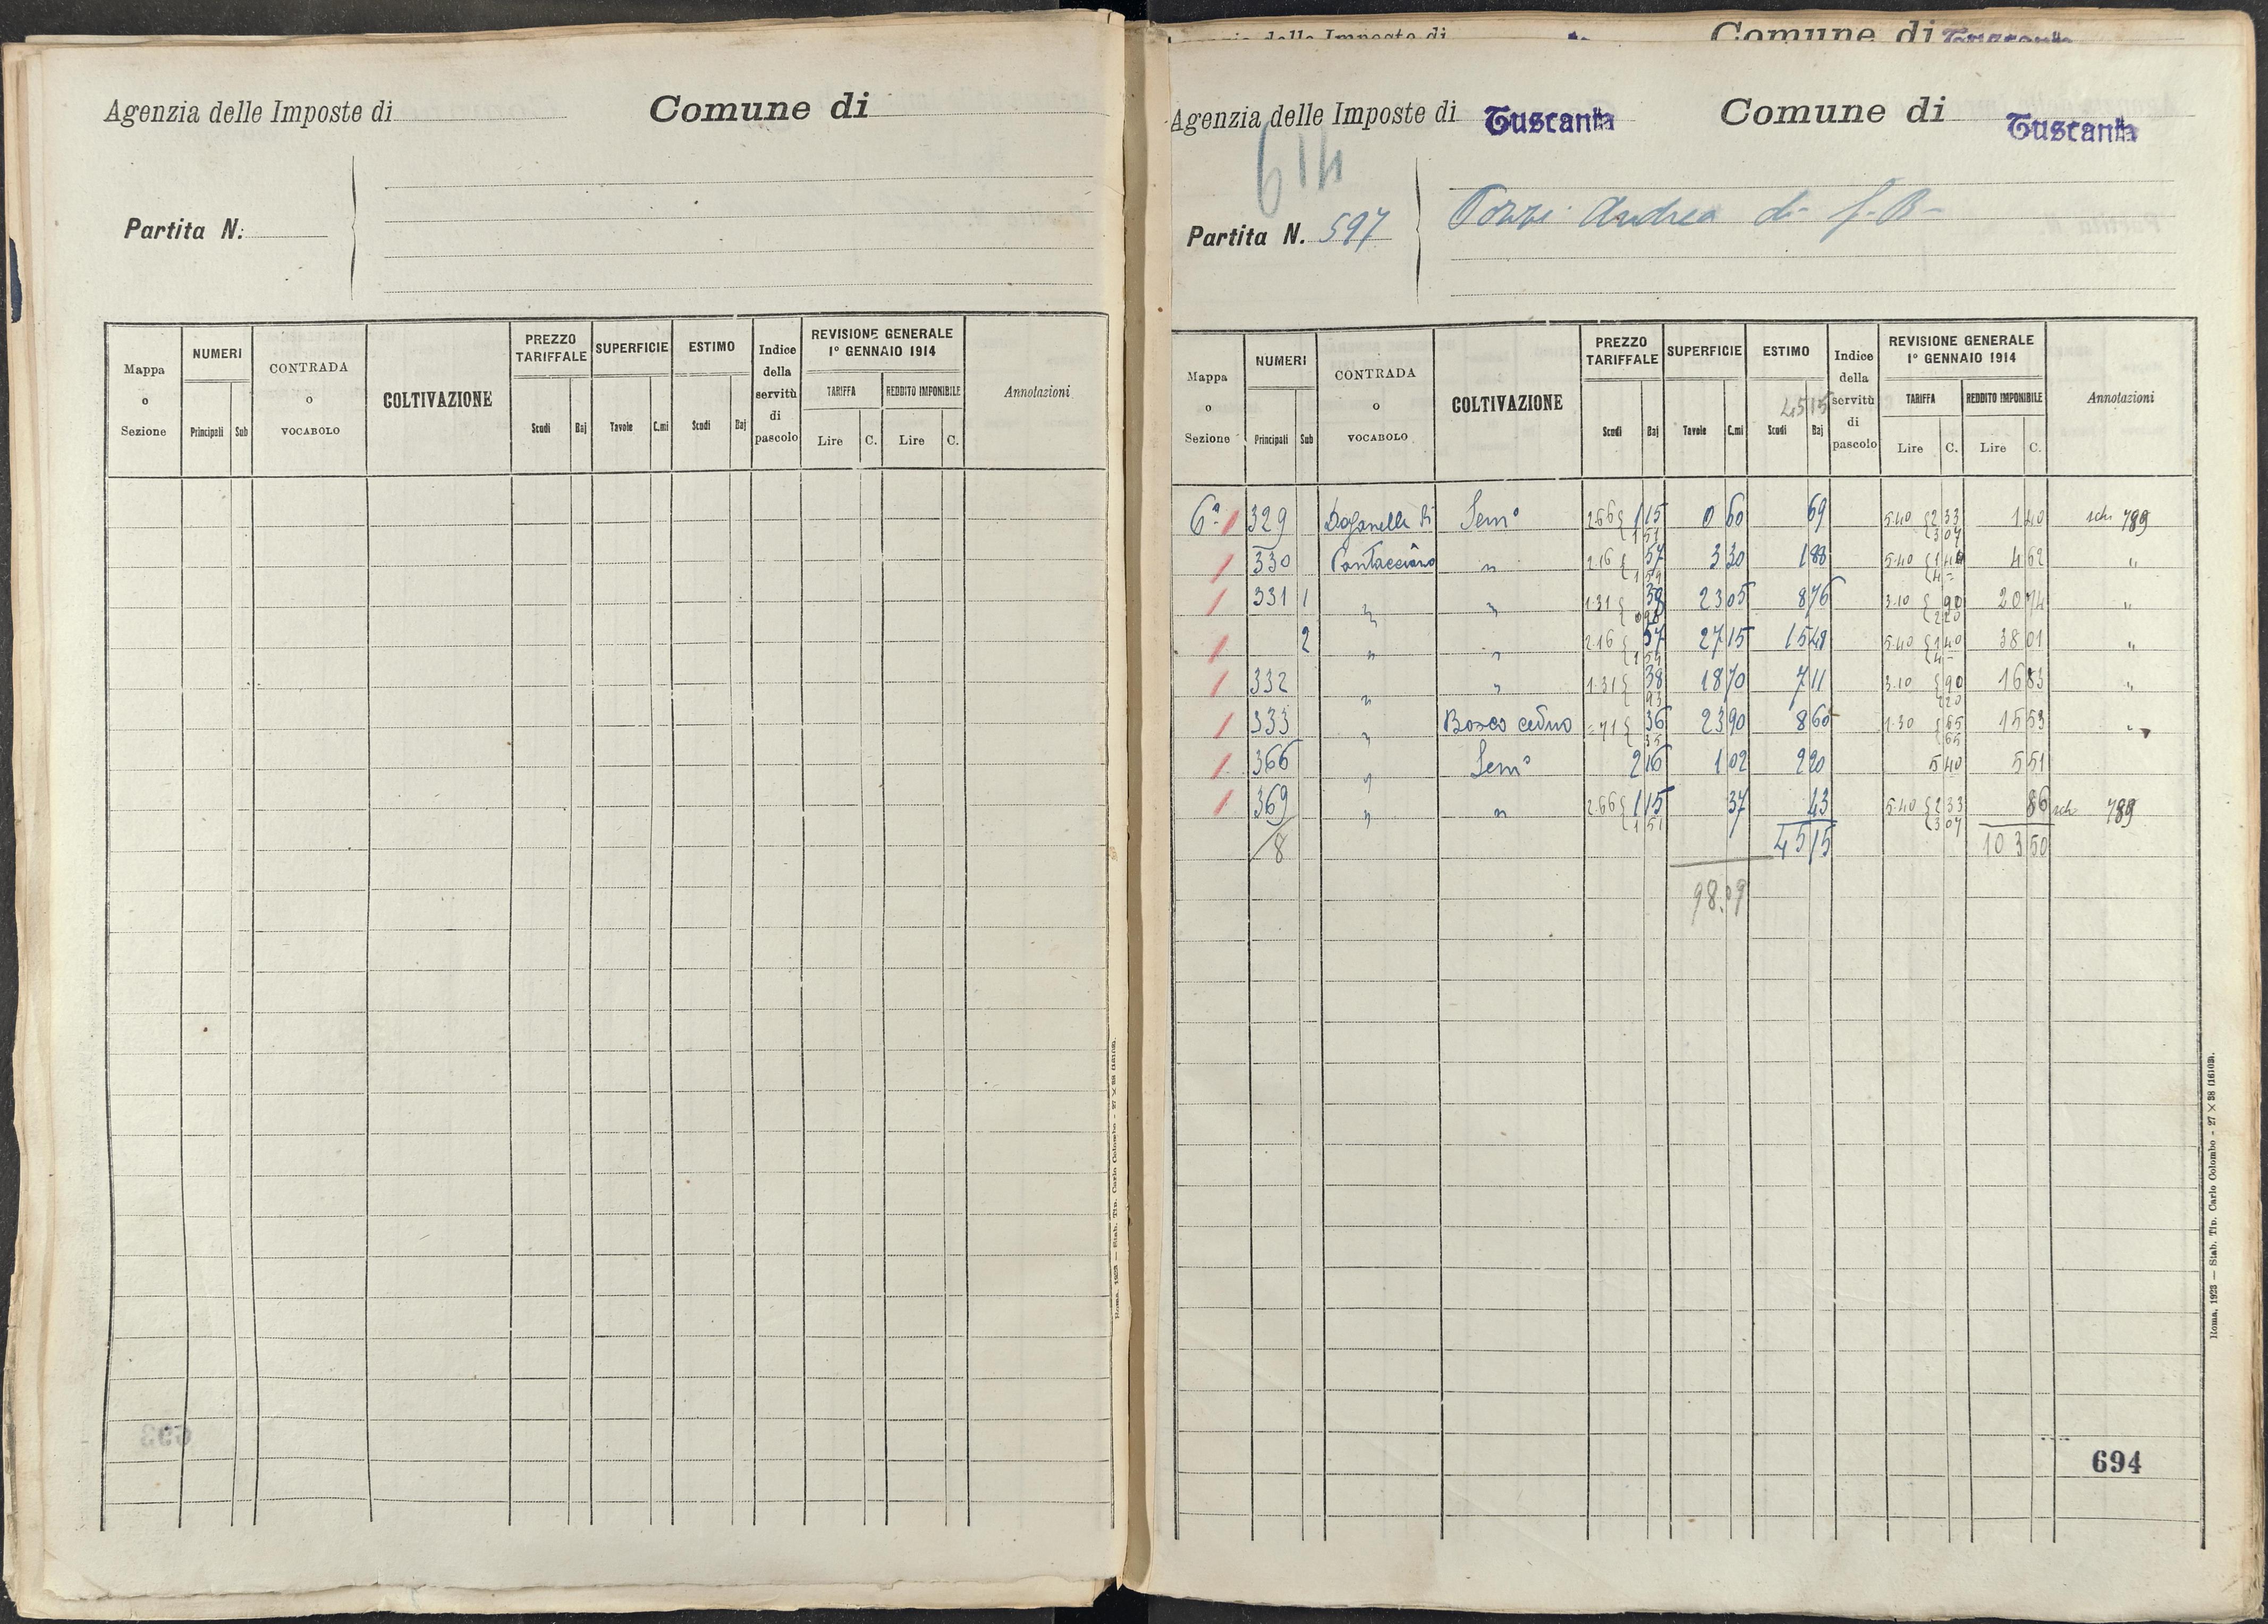 Agenzia delle Imposte di
Comune di
Partita N.
Mappa o Sezione
NUMERI
Principali
Sub
CONTRADA o VOCABOLO
COLTIVAZIONE
PREZZO TARIFFALE
Scudi
Baj
SUPERFICIE
Tavole
C.mi
ESTIMO
Scudi
Baj
Indice della servitù di pascolo
REVISIONE GENERALE 1° GENNAIO 1914
TARIFFA
REDDITO IMPONIBILE
Lire
C.
Lire
C.
Annotazioni
693
Roma, 1923 — Stab. Tip. Carlo Colombo - 27 × 38 (16103).
Comune di Tuscania
Agenzia delle Imposte di Tuscania
Comune di Tuscania
614
Partita N. 597
Andrea di G. B.
Mappa o Sezione
NUMERI
Principali
Sub
CONTRADA o VOCABOLO
COLTIVAZIONE
PREZZO TARIFFALE
Scudi
Baj
SUPERFICIE
Tavole
C.mi
ESTIMO
4515
Scudi
Baj
Indice della servitù di pascolo
REVISIONE GENERALE 1° GENNAIO 1914
TARIFFA
REDDITO IMPONIBILE
Lire
C.
Lire
C.
Annotazioni
6ª 329 Sem° 2.66 { 1 15 1 51 0 60 69 5.40 { 2 33 3 07 1 40 sch 789
330 " 2.16 { 57 1 59 3 30 1 88 5.40 { 1 40 4 = 4 62 "
331 1 " " 1.31 { 38 0 93 23 05 8 76 3.10 { 90 2 20 20 74 "
2 " " 2.16 { 57 1 59 27 15 15 48 5.40 { 1 40 4 = 38 01 "
332 " " 1.31 { 38 93 18 70 7 11 3.10 { 90 2 20 16 83 "
333 " Bosco ceduo =71 { 36 35 23 90 8 60 1.30 { 65 65 15 53 "
366 " Sem° 2 16 1 02 2 20 5 40 5 51
369 " " 2.66 { 1 15 1 51 37 43 5.40 { 2 33 3 07 86 sch 789
8 45 15 103 50
98.09
694
Roma, 1923 — Stab. Tip. Carlo Colombo - 27 × 38 (16103).